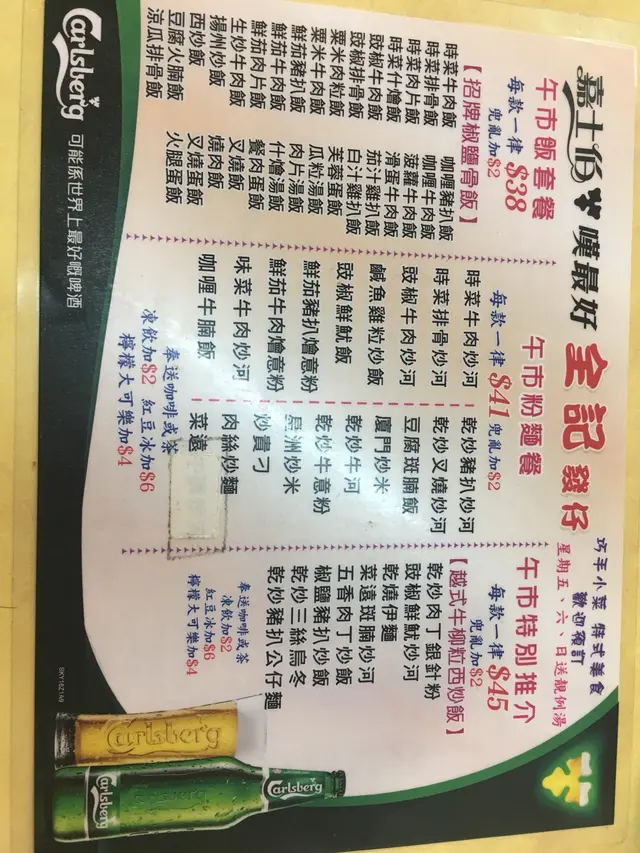 嘉士伯 嘆最好
全記 發仔
巧手小菜 特式美食
歡迎預訂
星期五、六、日送靚例湯
午市飯套餐
每款一律 $38
兜亂加$2
【招牌椒鹽骨飯】
時菜牛肉飯 咖喱豬扒飯
時菜排骨飯 咖喱牛肉飯
時菜肉片飯 菠蘿牛肉飯
時菜什燴飯 滑蛋牛肉飯
豉椒牛肉飯 茄汁雞扒飯
豉椒排骨飯 白汁雞扒飯
粟米肉粒飯 芙蓉蛋飯
粟米牛肉飯 瓜粒湯飯
鮮茄豬扒飯 肉片湯飯
鮮茄牛肉飯 什燴湯飯
鮮茄肉片飯 餐肉蛋飯
生炒牛肉飯 叉燒飯
揚州炒飯 燒肉飯
西炒飯 叉燒蛋飯
豆腐火腩飯 火腿蛋飯
涼瓜排骨飯
午市粉麵餐
每款一律 $41 兜亂加$2
時菜牛肉炒河 乾炒豬扒炒河
時菜排骨炒河 乾炒叉燒炒河
豉椒牛肉炒河 豆腐斑腩飯
鹹魚雞粒炒飯 廈門炒米
豉椒鮮魷飯 乾炒牛河
鮮茄豬扒燴意粉 乾炒牛意粉
鮮茄牛肉燴意粉 星洲炒米
味菜牛肉炒河 炒貴刁
咖喱牛腩飯 肉絲炒麵
菜遠
奉送咖啡或茶
凍飲加$2 紅豆冰加$6
檸檬大可樂加$4
午市特別推介
每款一律 $45
兜亂加$2
【越式牛柳粒西炒飯】
乾炒肉丁銀針粉
豉椒鮮魷炒河
乾燒伊麵
菜遠斑腩炒河
五香肉丁炒飯
椒鹽豬扒炒飯
乾炒三絲烏冬
乾炒豬扒公仔麵
奉送咖啡或茶
凍飲加$2
紅豆冰加$6
檸檬大可樂加$4
Carlsberg 可能係世界上最好嘅啤酒
Carlsberg
Carlsberg
Carlsberg